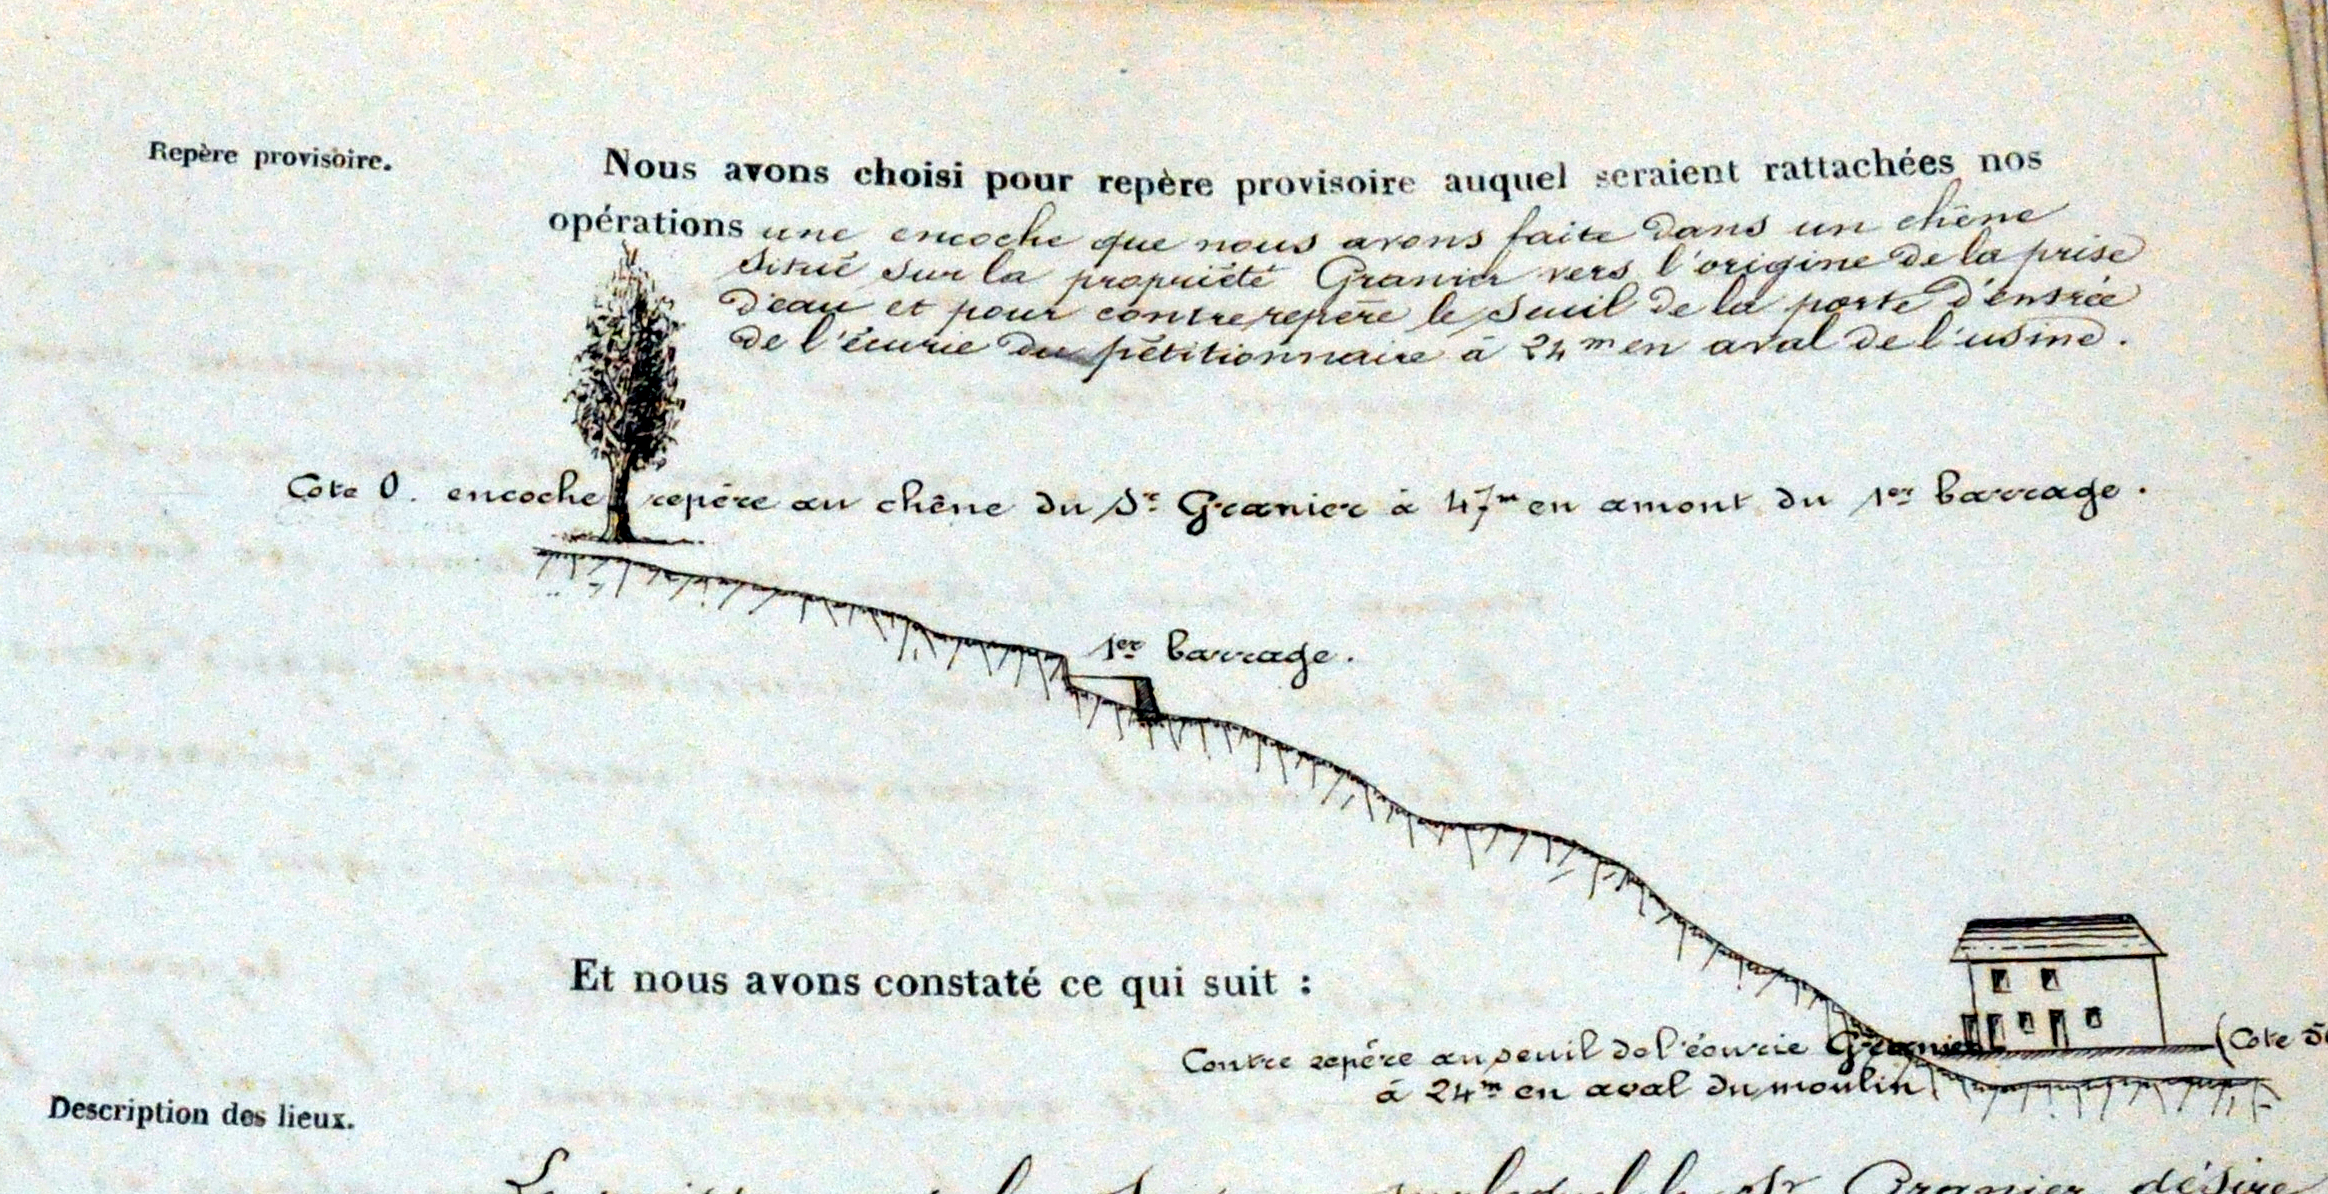 Repère provisoire.
Nous avons choisi pour repère provisoire auquel seraient rattachées nos
opérations une encoche que nous avons faite dans un chêne
situé sur la propriété Granier vers l'origine de la prise
d'eau et pour contrerepère le seuil de la porte d'entrée
de l'écurie du pétitionnaire à 24m en aval de l'usine.
Cote 0. encoche repère au chêne du Sr Granier à 47m en amont du 1er barrage.
1er barrage.
Et nous avons constaté ce qui suit :
Contre repère au seuil de l'écurie Granier (Cote
à 24m en aval du moulin
Description des lieux.
Granier désire